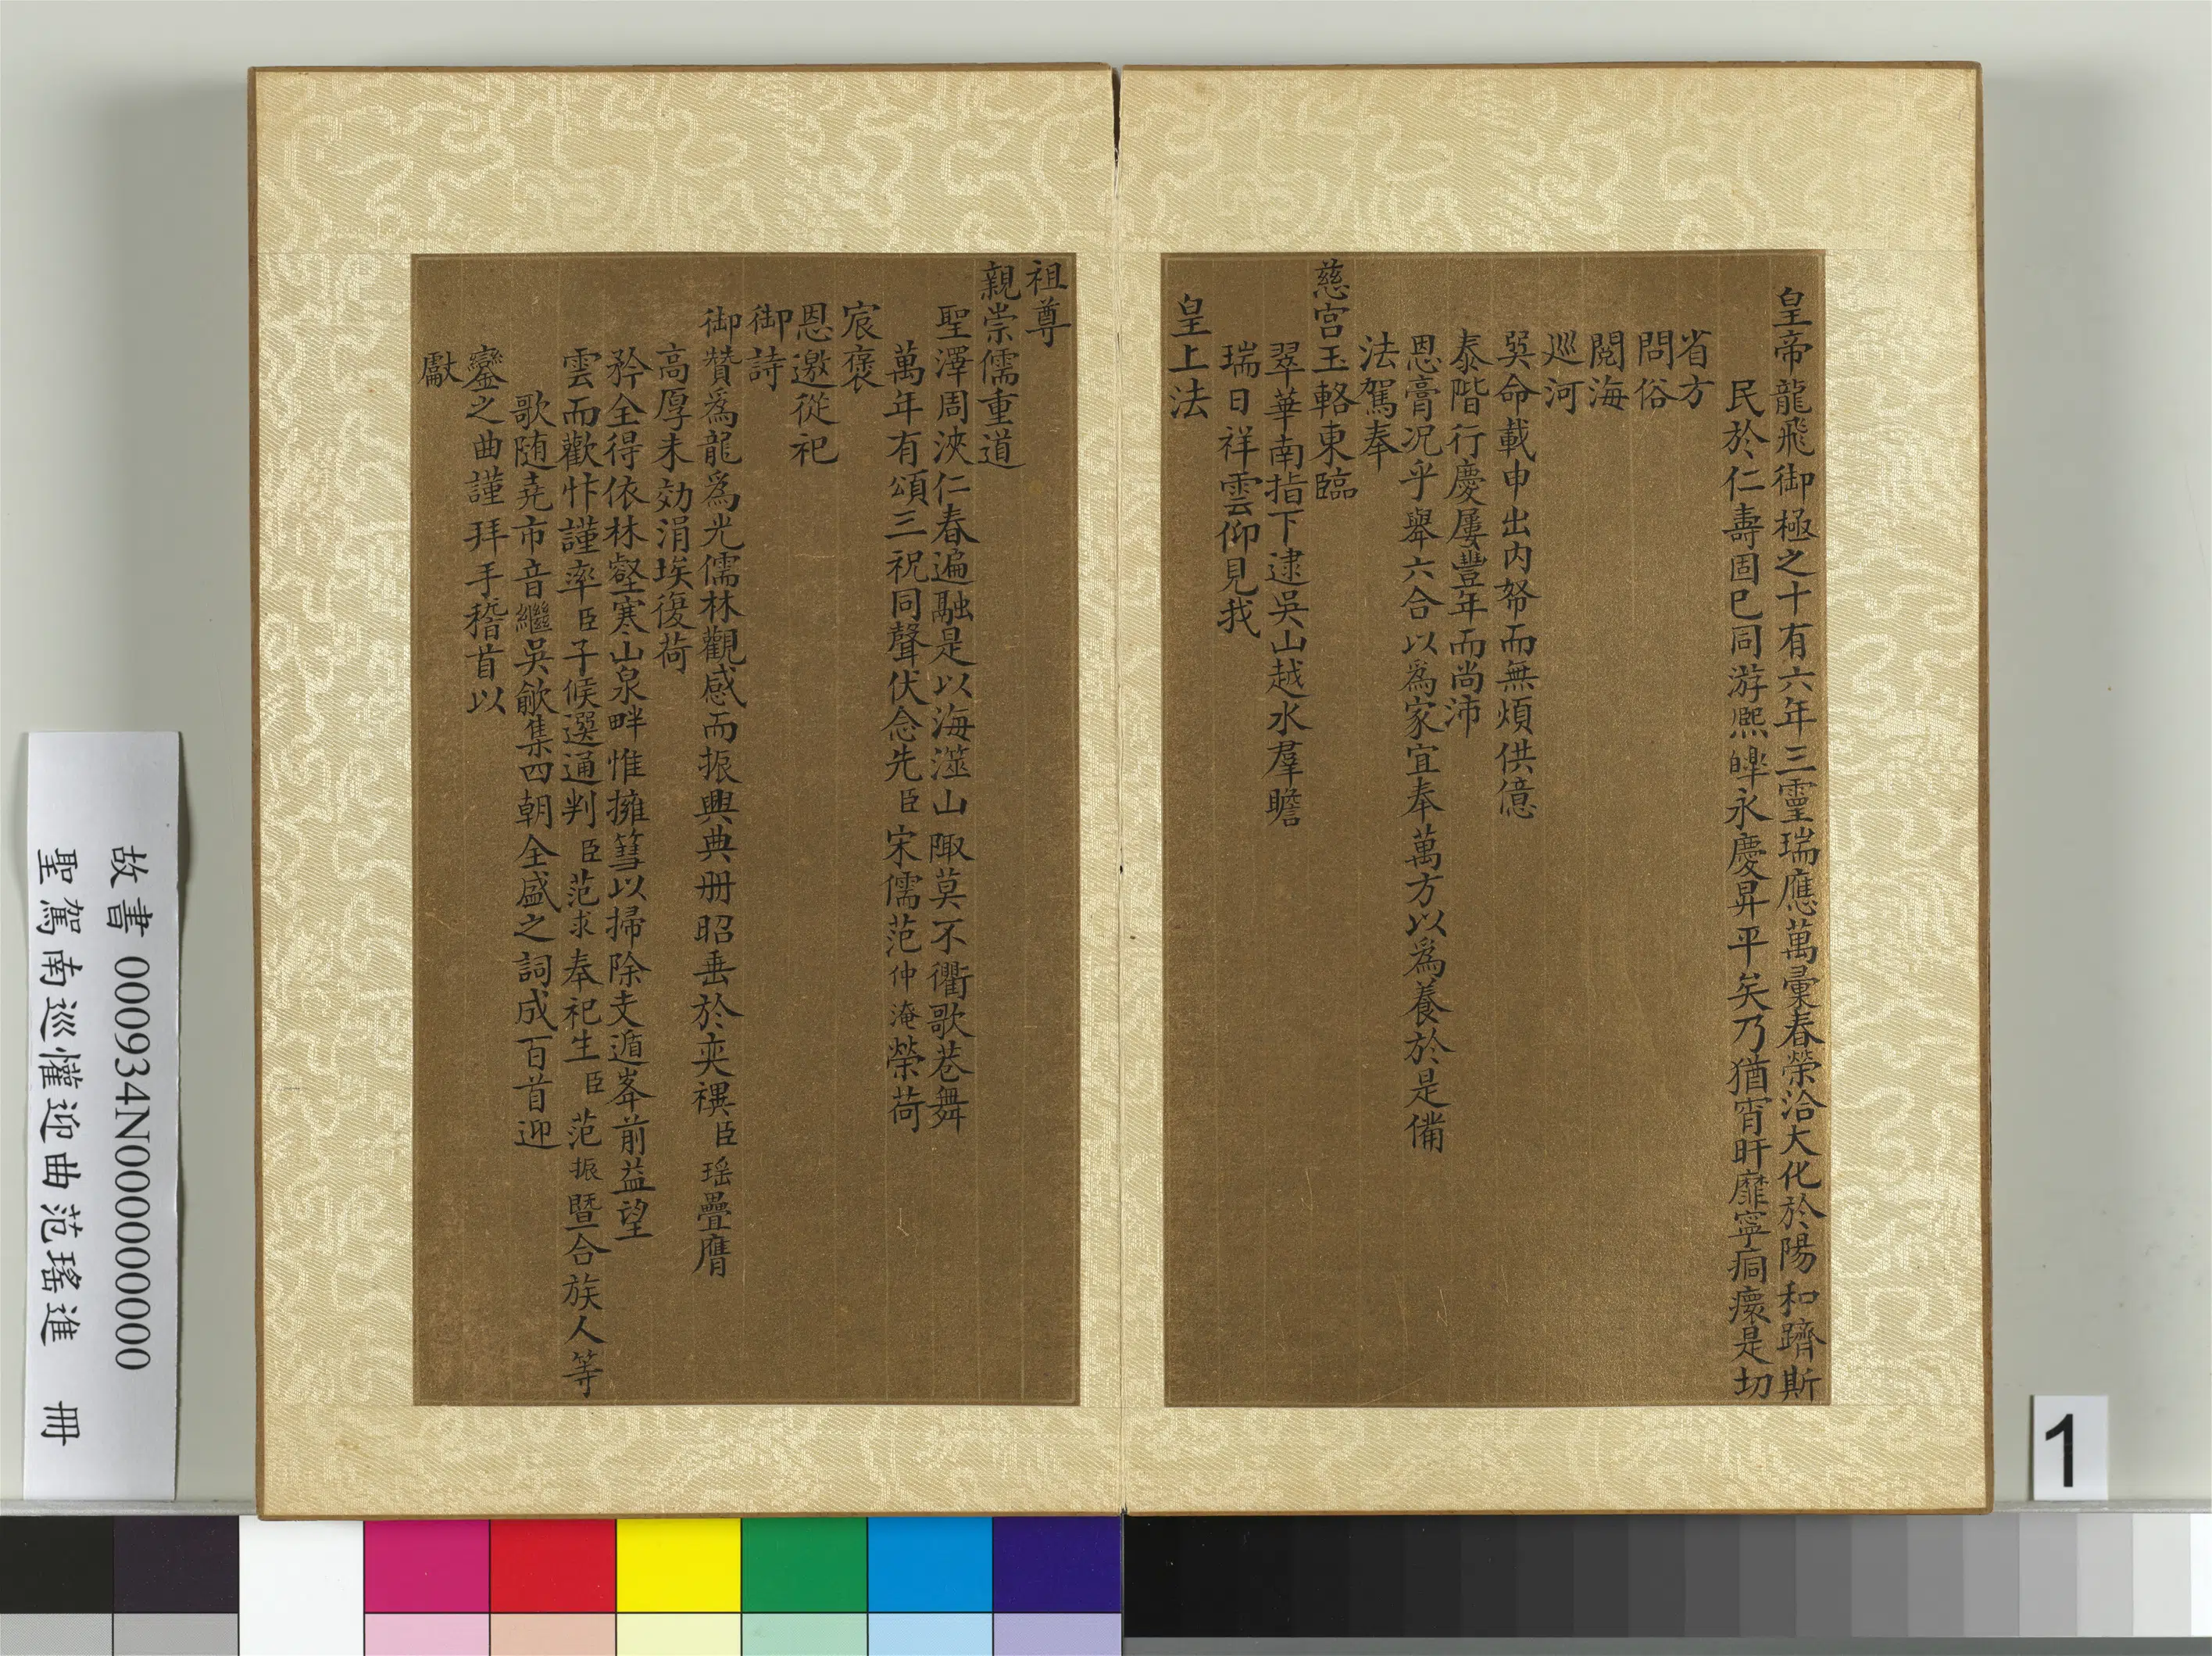 皇帝龍飛御極之十有六年三靈瑞應萬彚春榮洽大化於陽和躋斯
民於仁壽固已同游熈皡永慶昇平矣乃猶宵旰靡寧痌瘝是切
省方
問俗
閱海
巡河
巽命載申出內帑而無煩供億
泰階行慶屢豐年而尚沛
恩膏况乎舉六合以爲家宜奉萬方以爲養於是備
法駕奉
慈宮玉輅東臨
翠華南指下逮吳山越水羣瞻
瑞日祥雲仰見我
皇上法
祖尊
親崇儒重道
聖澤周浹仁春遍融是以海澨山陬莫不衢歌巷舞
萬年有頌三祝同聲伏念先臣宋儒范仲淹榮荷
宸褒
恩邀從祀
御詩
御贊爲龍爲光儒林觀感而振興典册昭垂於奕禩臣瑶疊膺
高厚未効涓埃復荷
矜全得依林壑寒山泉畔惟擁篲以掃除支遁峯前益望
雲而歡忭謹率臣子候選通判臣范求奉祀生臣范振暨合族人等
歌随堯市音繼吳歈集四朝全盛之詞成百首迎
鑾之曲謹拜手稽首以
獻
故書 000934N000000000
聖駕南巡懽迎曲范瑤進 冊
1